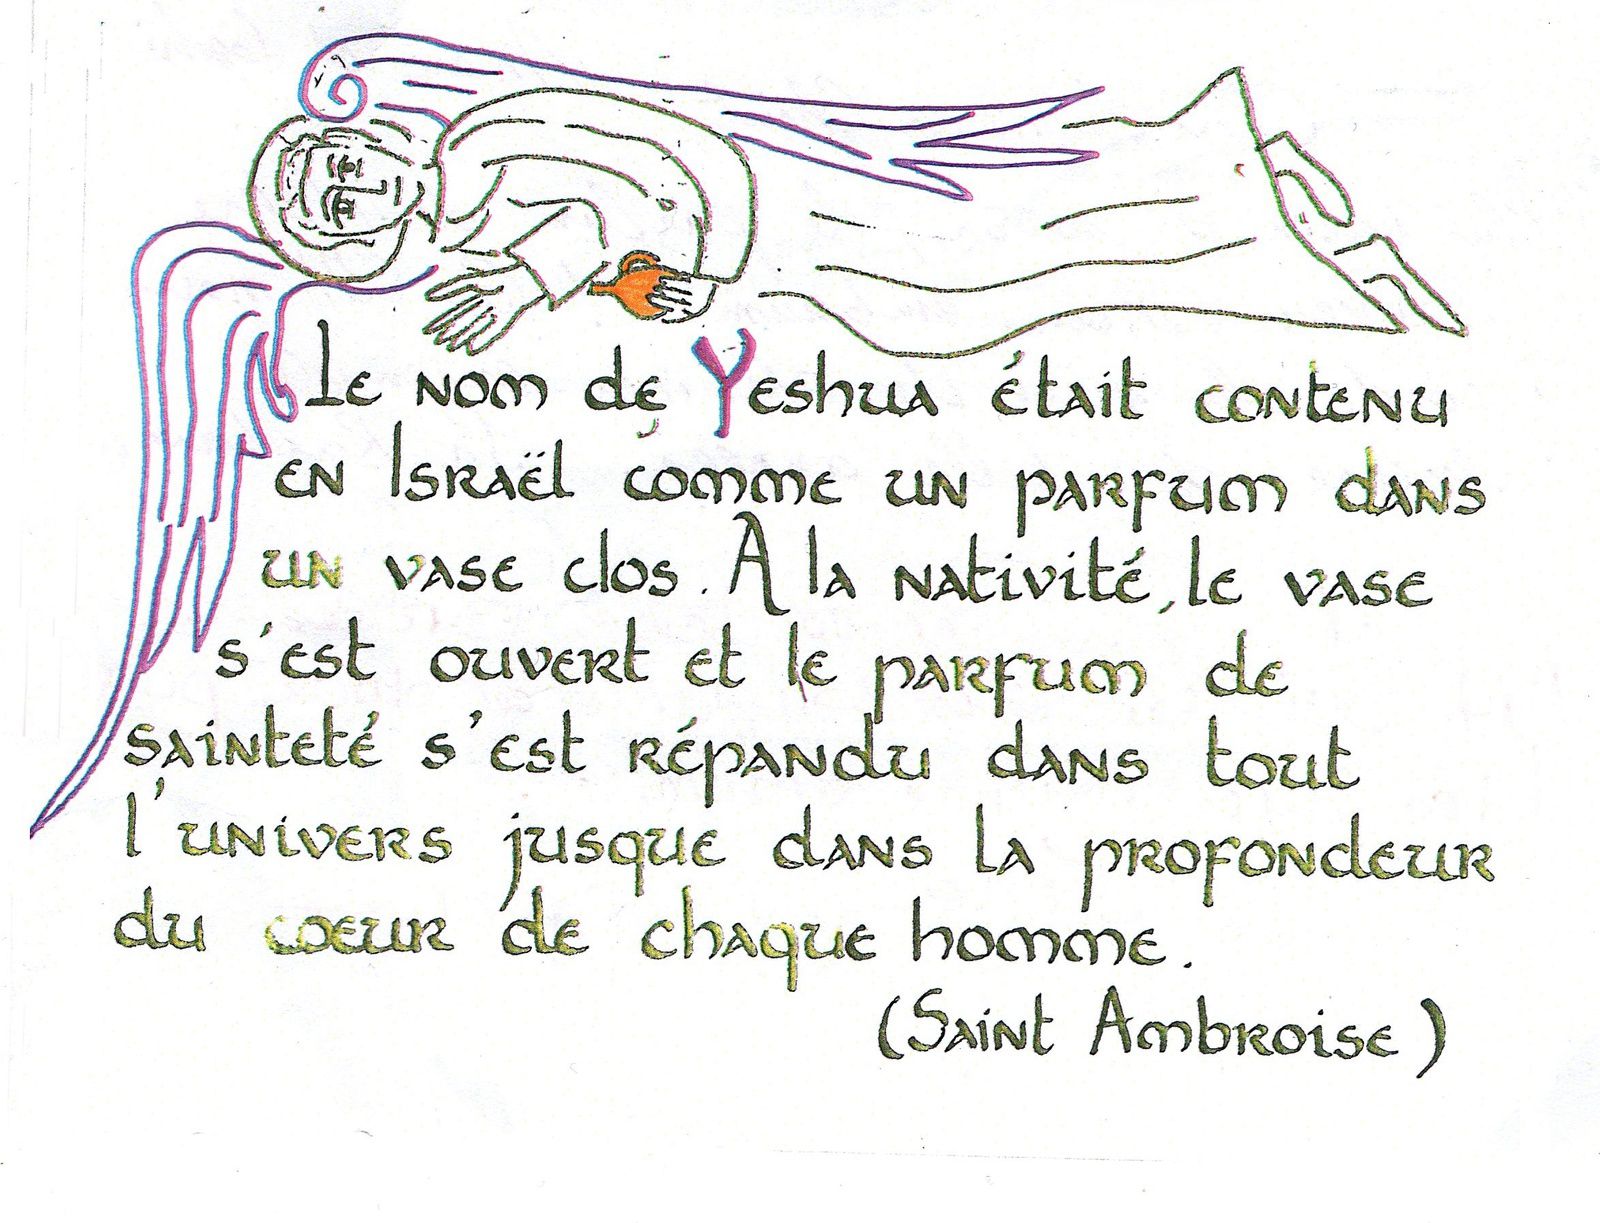 Le nom de Yeshua était contenu
en Israël comme un parfum dans
un vase clos. A la nativité, le vase
s'est ouvert et le parfum de
sainteté s'est répandu dans tout
l'univers jusque dans la profondeur
du coeur de chaque homme.
(Saint Ambroise)